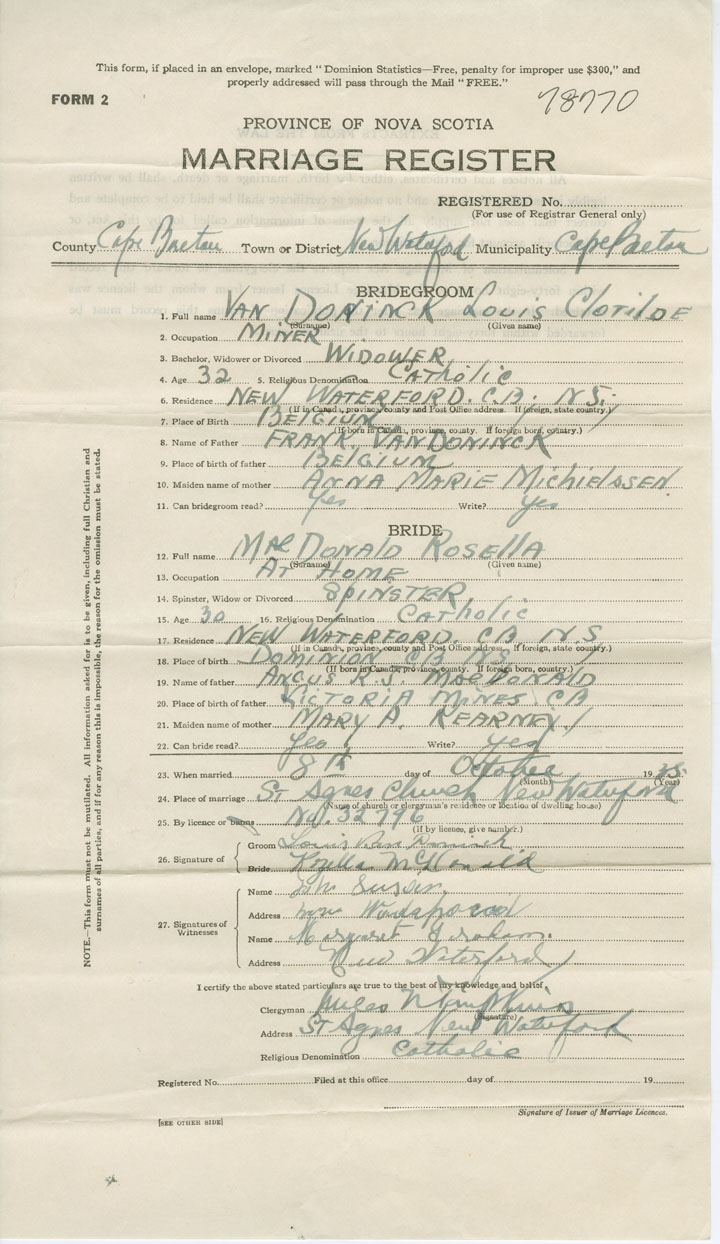 This form, if placed in an envelope, marked "Dominion Statistics—Free, penalty for improper use $300," and
properly addressed will pass through the Mail "FREE."
FORM 2
78770
PROVINCE OF NOVA SCOTIA
MARRIAGE REGISTER
REGISTERED No.
(For use of Registrar General only)
County Cape Breton Town or District New Waterford Municipality Cape Breton
BRIDEGROOM
1. Full name VAN DONINCK LOUIS CLOTILDE
(Surname) (Given name)
2. Occupation MINER
3. Bachelor, Widower or Divorced WIDOWER
4. Age 32 5. Religious Denomination CATHOLIC
6. Residence NEW WATERFORD. C.B. N.S.
(If in Canada, province, county and Post Office address. If foreign, state country.)
7. Place of Birth BELGIUM
(If born in Canada, province, county. If foreign born, country.)
8. Name of Father FRANK VAN DONINCK
9. Place of birth of father BELGIUM
10. Maiden name of mother ANNA MARIE MICHIELSSEN
11. Can bridegroom read? Yes Write? yes
BRIDE
12. Full name MacDONALD ROSELLA
(Surname) (Given name)
13. Occupation AT HOME
14. Spinster, Widow or Divorced SPINSTER
15. Age 30 16. Religious Denomination CATHOLIC
17. Residence NEW WATERFORD. C.B. N.S.
(If in Canada, province, county and Post Office address. If foreign, state country.)
18. Place of birth DOMINION C.B. N.S.
(If born in Canada, province, county. If foreign born, country.)
19. Name of father ANGUS R.J. MacDONALD
20. Place of birth of father VICTORIA MINES. CB
21. Maiden name of mother MARY A. KEARNEY
22. Can bride read? Yes Write? yes
23. When married 8th day of October 19
(Month) (Year)
24. Place of marriage St Agnes Church New Waterford
(Name of church or clergyman's residence or location of dwelling house)
25. By licence or banns No. 32796
(If by licence, give number.)
26. Signature of
Groom Louis Van Doninck
Bride Rosella McDonald
27. Signatures of
Witnesses
Name John
Address
Name Margaret Graham
Address New Waterford
I certify the above stated particulars are true to the best of my knowledge and belief,
Clergyman
(Signature)
Address St Agnes New Waterford
Religious Denomination Catholic
Registered No. Filed at this office day of 19
Signature of Issuer of Marriage Licences.
[SEE OTHER SIDE]
NOTE.—This form must not be mutilated. All information asked for is to be given, including full Christian and
surnames of all parties, and if for any reason this is impossible, the reason for the omission must be stated.